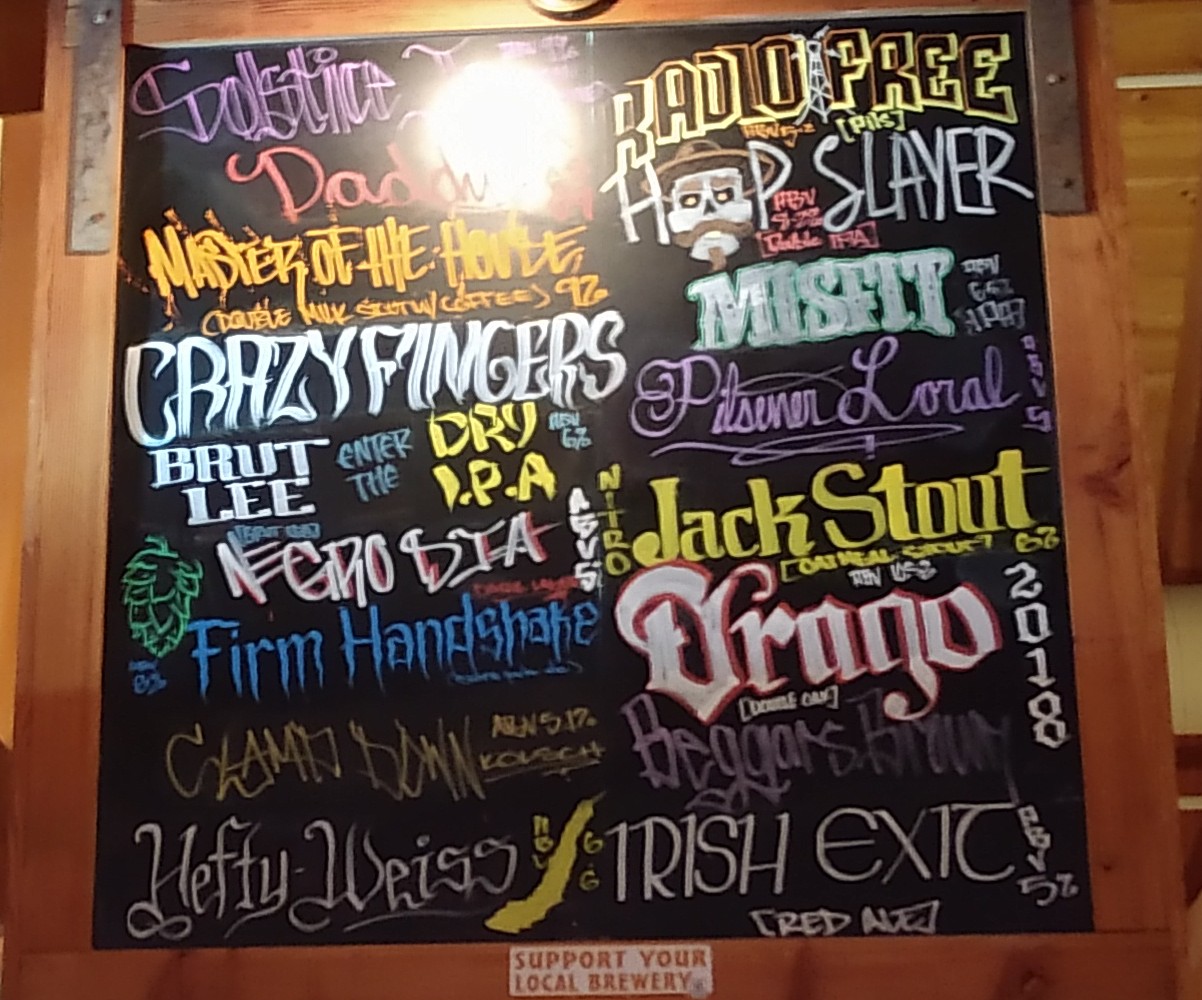 Solstice
MASTER OF THE HOUSE
(DOUBLE MILK STOUT W/ COFFEE) 9%
CRAZY FINGERS
BRUT LEE
ENTER THE
DRY I.P.A
ABV 6%
NEGRO SIA
ABV 5
Firm Handshake
ABV 8%
CLAMP DOWN
ABV 5.1%
KOLSCH
Hefty-Weiss
ABV 6.6
RADIO FREE
ABV 5.2
[Pils]
HOP SLAYER
ABV
[Double IPA]
MISFIT
ABV
Pilsener Loral
ABV 5
NITRO
Jack Stout
[OATMEAL STOUT]
Drago
2018
Beggars Brown
IRISH EXIT
ABV 5%
[RED ALE]
SUPPORT YOUR
LOCAL BREWERY